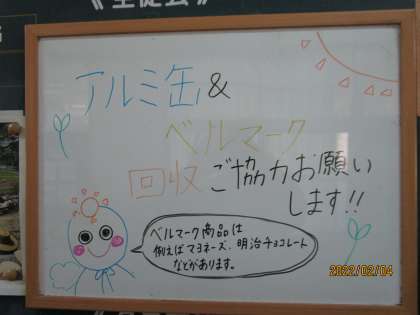 《生徒会》
アルミ缶&
ベルマーク
回収ご協力お願い
します!!
ベルマーク商品は
例えばマヨネーズ、明治チョコレート
などがあります。
2022/02/04